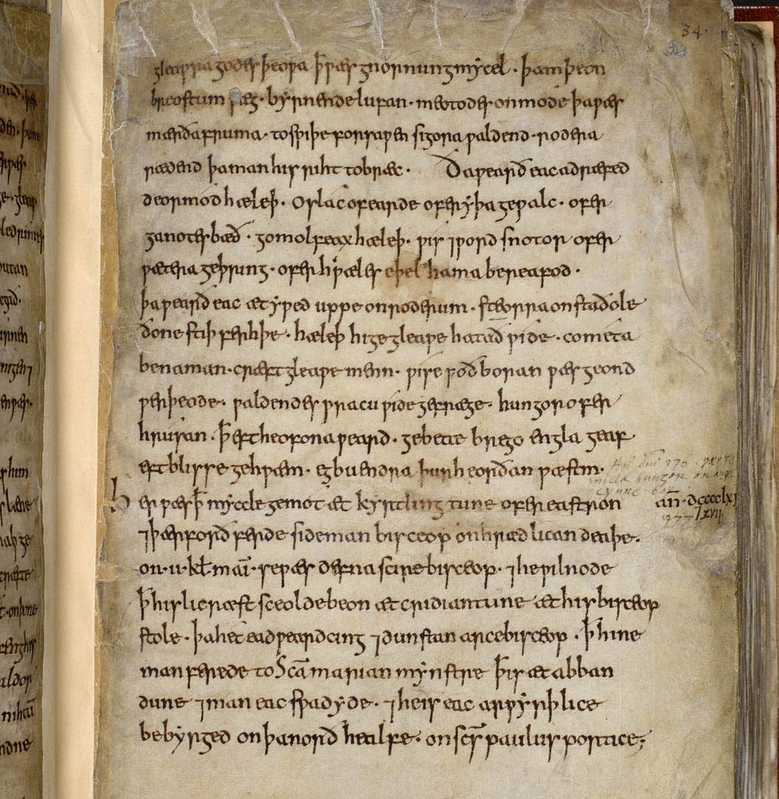 gleaƿra godes þeoƿa þ ƿæs gnornung mycel · þam þe on
breostum ƿæg · byrnende lufan · metodes on mode þa ƿæs
mærða fruma · to sƿiþe forsaƿen sigora ƿaldend · rodera
rædend þa man his riht tobræc · Ða ƿearð eac adræfed
deormod hæleþ · Oslac of earde ofer yþa geƿalc · ofer
ganotes bæð · gomolfeax hæleþ · ƿis ⁊ ƿord snotor ofer
ƿætera geþring · ofer hƿæles eþel hama bereafod ·
þa ƿearð eac ætyƿed uppe on roderum · steorra on staðole
ðone stiþ ferhþe · hæleþ hige gleaƿe hatað ƿide · cometa
be naman · cræft gleaƿe menn · ƿise ƿoðboran ƿæs geond
ƿerþeode · ƿaldendes ƿracu ƿide gefræge · hungor ofer
hrusan · þ eft heofona ƿeard · gebette brego engla geaf
eft blisse gehƿæm · egbuendra þurh eorðan ƿæstm ·
Her ƿæs þ myccle gemot æt kyrtlingtune ofer eastron añ · dcccclx
⁊ þær forðferde sideman bisceop on hrædlican deaþe ·
on · ii · kł mai · se ƿæs defna scire bisceop · ⁊ he ƿilnode
þ his licræst sceolde beon æt cridiantune æt his bisceop
stole · þa het eadƿeard cing ⁊ dunstan arcebisceop · þ hine
man ferede to Sca marian mynstre þ is æt abban
dune ⁊ man eac sƿa dyde · ⁊ he is eac arƿyrþlice
bebyrged on þa norð healfe · on scs paulus portice;
34